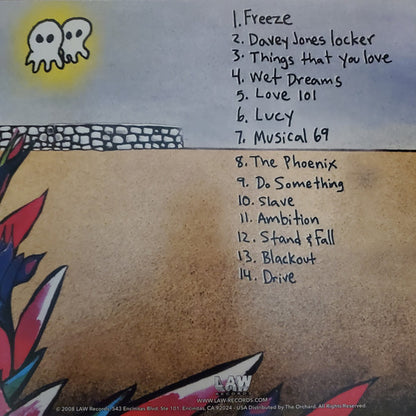 1. Freeze
2. Davey Jones locker
3. Things that you love
4. Wet Dreams
5. Love 101
6. Lucy
7. Musical 69
8. The Phoenix
9. Do Something
10. Slave
11. Ambition
12. Stand & Fall
13. Blackout
14. Drive
LAW
RECORDS
WWW.LAW-RECORDS.COM
© 2008 LAW Records, 543 Encinitas Blvd. Ste 101, Encinitas, CA 92024 - USA Distributed by The Orchard. All Rights Reserved.